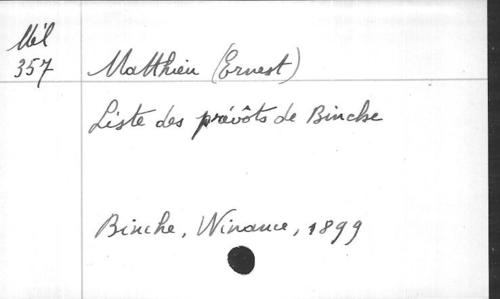 Mél
357
Matthieu (Ernest)
Liste des prévôts de Binche
Binche, Winance, 1899